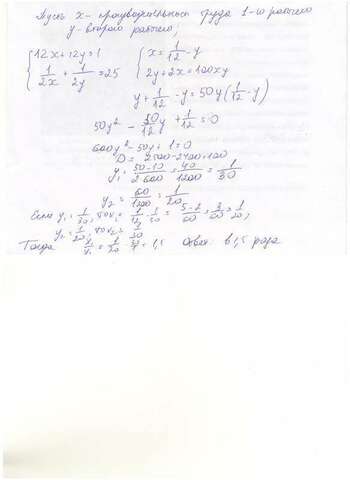 Пусть x - производительность труда 1-го рабочего
y - второго рабочего,
{ 12x + 12y = 1 { x = 1/12 - y
{ 1/2x + 1/2y = 25 { 2y + 2x = 100xy
y + 1/12 - y = 50y(1/12 - y)
50y² - 50/12 y + 1/12 = 0
600y² - 50y + 1 = 0
D = 2500 - 2400 = 100
y₁ = 50-10/2·600 = 40/1200 = 1/30
y₂ = 60/1200 = 1/20
Если y₁ = 1/30, то x₁ = 1/12 - 1/30 = 5-2/60 = 3/60 = 1/20,
y₂ = 1/20, то x₂ = 1/30
Тогда = 1,5 Ответ: в 1,5 раза